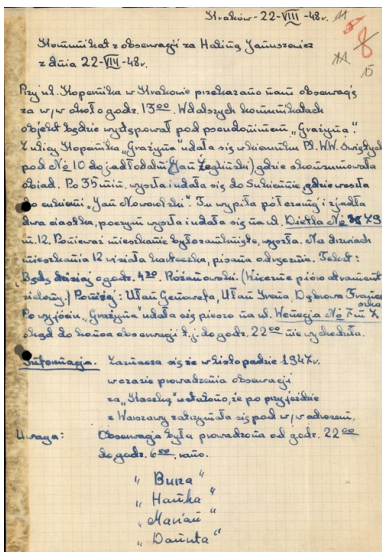 Kraków - 22-VIII-48r.
8
15
Komunikat z obserwacji za Haliną Januszewicz
z dnia 22-VIII-48r.
Przy ul. Kopernika w Krakowie przekazano nam obserwację
za w/w około godz. 13⁰⁰. W dalszych komunikatach
objekt będzie występował pod pseudonimem „Grażyna".
Z ulicy Kopernika „Grażyna" udała się w kierunku Pl. WW. Świętych
pod № 10 do jadłodalni (Jan) gdzie skonsumowała
obiad. Po 35 min. wyszła i udała się do Sukiennic gdzie weszła
do cukierni „Jan Noworolski". Tu wypiła pół czarnej i zjadła
dwa ciastka, poczym wyszła i udała się na ul. Dietla № 79
m. 12. Ponieważ mieszkanie było zamknięte, wyszła. Na drzwiach
mieszkania 12 wisiała karteczka, pisana odręcznie. Tekst:
Będę dzisiaj o godz. 4³⁰. Rożanowski. (Wieczne pióro atrament
zielony.) Poniżej: Ułan Genowefa, Ułan Irena, Dąbrowa Franciszka
Po wyjściu, „Grażyna" udała się pieszo na ul. Wenecja № 7 m. 7
skąd do końca obserwacji t.j. do godz. 22⁰⁰ nie wychodziła.
Informacja. Zaznacza się że w listopadzie 1947r.
w czasie prowadzenia obserwacji
za ustalono, że po przyjeździe
z Warszawy zatrzymała się pod w/w adresem.
Uwaga: Obserwacja była prowadzona od godz. 22⁰⁰
do godz. 6⁰⁰, rano.
„Burza"
„Hańka"
„Marian"
„Danuta"